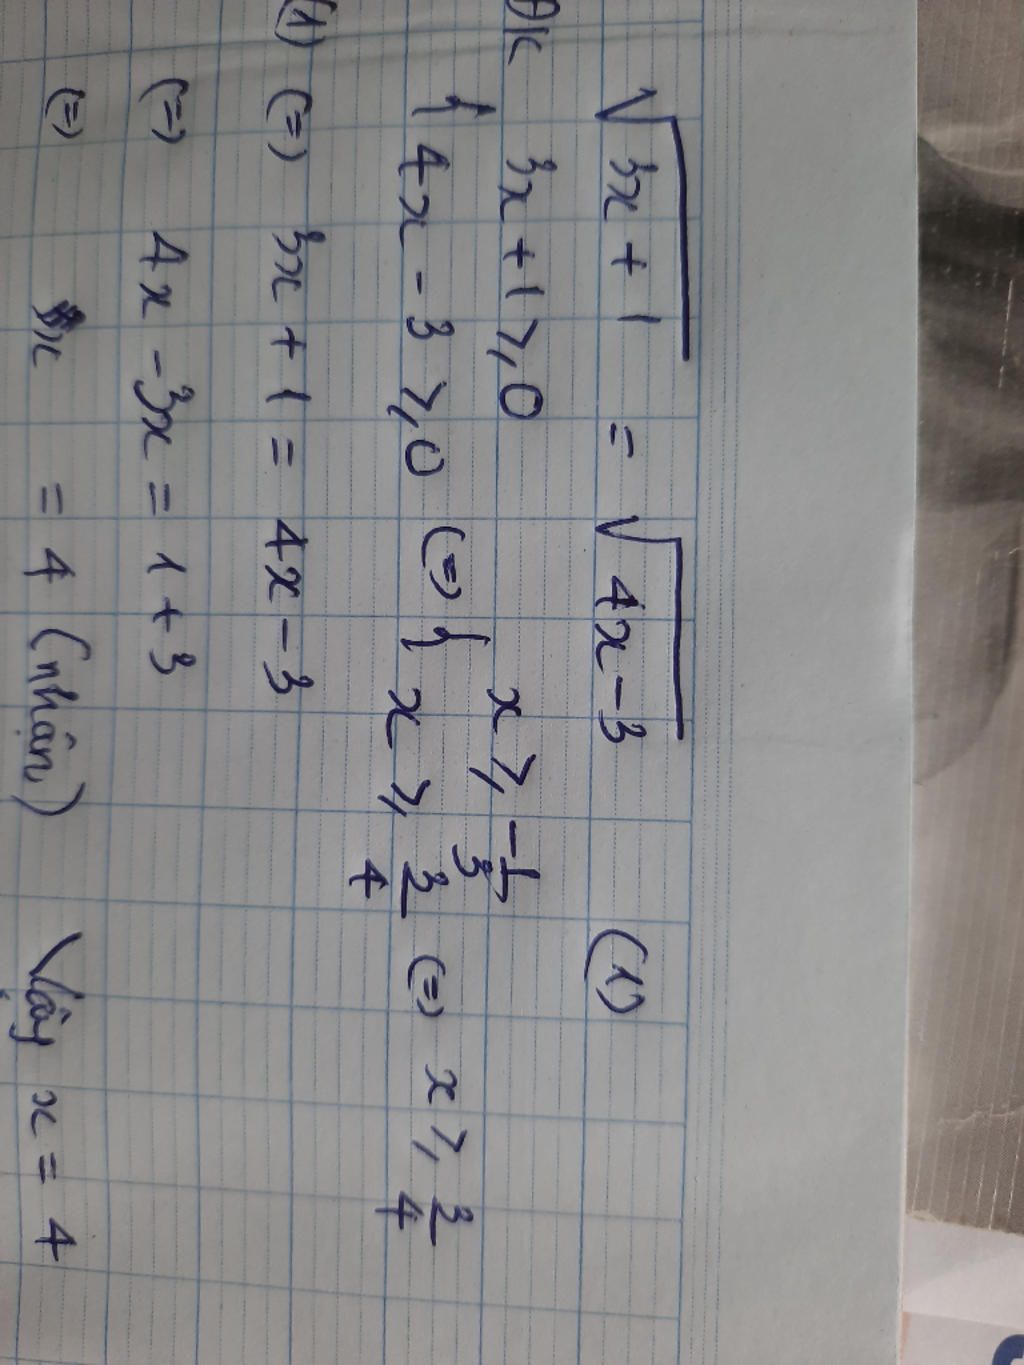 √(3x + 1) = √(4x - 3) (1)
ĐK { 3x + 1 ≥ 0
4x - 3 ≥ 0 (=) { x ≥ -1/3
x ≥ 3/4 (=) x ≥ 3/4
(1) (=) 3x + 1 = 4x - 3
(=) 4x - 3x = 1 + 3
(=) x = 4 (nhận) Vậy x = 4